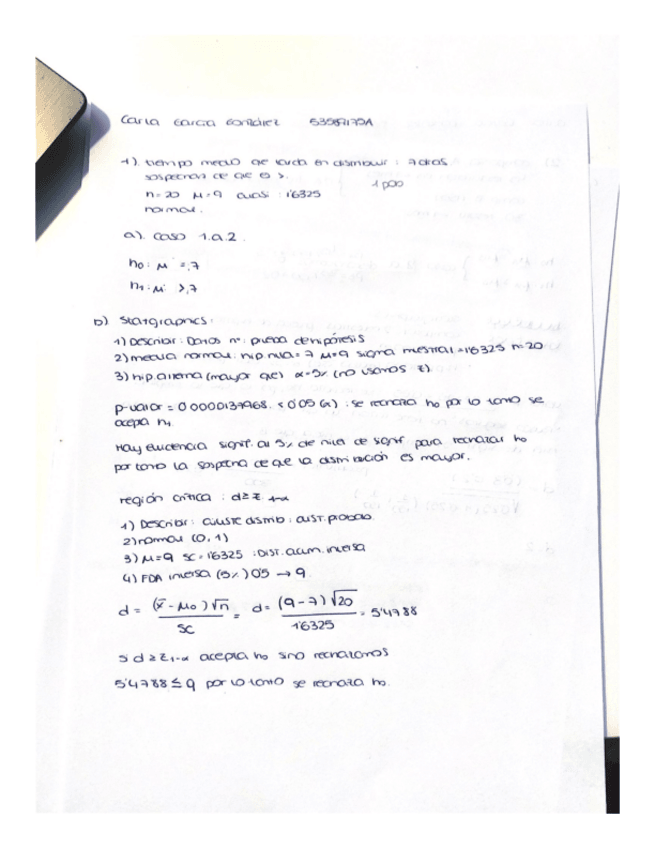 Carla Garcia González 53581179A
1). tiempo medio que tarda en distribuir : 7 dias
sospechas de que es >. 1 pob
n=20 μ=9 cuasi : 1'6325
normal.
a). caso 1.a.2.
h0: μ = 7
h1: μ > 7
b) Statgraphics:
1) Describir: Datos nº: prueba de hipótesis
2) media normal: hip nula = 7 μ=9 sigma mestral = 1'6325 n=20
3) hip. alterna (mayor que) α=5% (no usamos z).
p-valor = 0'0000137968. < 0'05 (α) : se rechaza ho por lo tanto se
acepta h1.
Hay evidencia signif. al 5% de nivel de signif para rechazar ho
por tanto la sospecha de que la distribución es mayor.
región crítica : d ≥ z 1-α
1) Describir: ajuste distrib: dist. probab
2) normal (0,1)
3) μ=9 sc=1'6325 : Dist. acum. inversa
4) FDA inversa (5%) 0'5 → 9
d = (x̄ - μ0)√n / sc = d = (9-7)√20 / 1'6325 = 5'4788
si d ≥ z1-α acepta ho sino rechazamos
5'4788 ≤ 9 por lo tanto se rechaza ho.